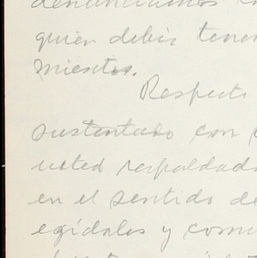 denunciamos
quien debía tener
Respecto
sustentado con
usted respaldada
en el sentido de
egidales y comu